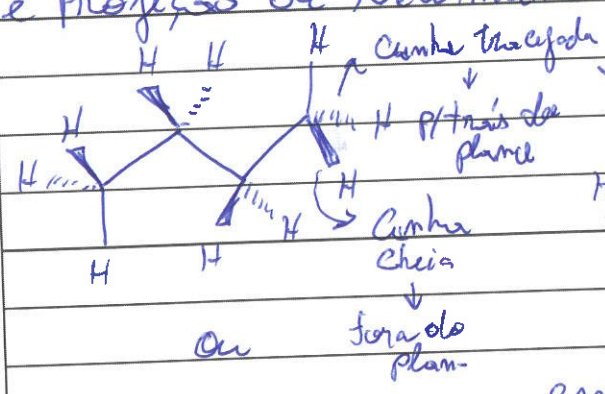 e projeção de
H H H Cunha tracejada
H H p/ trás do
H plano
H H H Cunha
H Cheia
Ou fora do
plan-